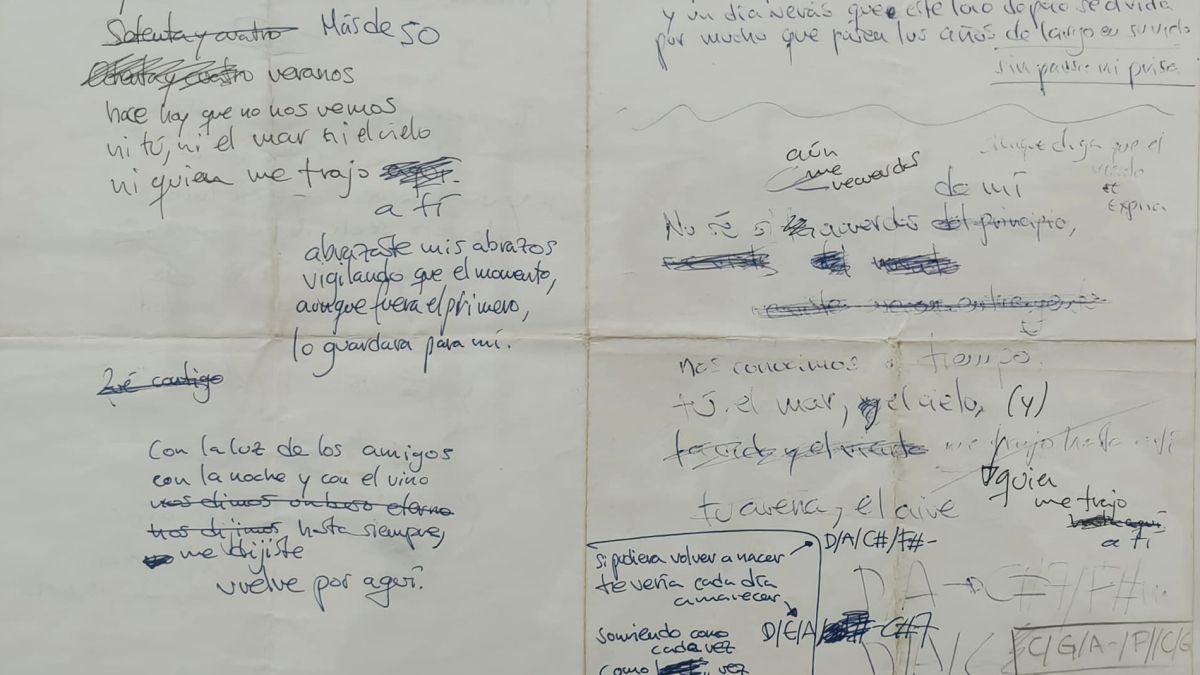 Setenta y cuatro Más de 50
Ochenta y cuatro veranos
hace hoy que no nos vemos
ni tú, ni el mar ni el cielo
ni quien me trajo
a tí
abrazaste mis abrazos
vigilando que el momento,
aunque fuera el primero,
lo guardara para mí.
contigo
Con la luz de los amigos
con la noche y con el vino
nos dimos un beso eterno
nos dijimos hasta siempre,
me dijiste
vuelve por aquí.
y un día verás que este loco de poco se olvida
por mucho que pasen los años de largo en su vida
sin pausa ni prisa
aunque diga que el
aún
me recuerdas
de mí
No sé si acuerdas del principio,
nos conocimos tiempo.
tú, el mar, y el cielo, (y)
me trajo hasta
quien
me trajo
hasta aquí
a tí
tu arena, el aire
si pudiera volver a nacer
te vería cada día
amanecer
sonriendo como
cada vez
como vez
D/A/C#/F#-
D A → C#7/F#
D/E/A/ C#7
D/A/C
C/G/A-/F//C/G